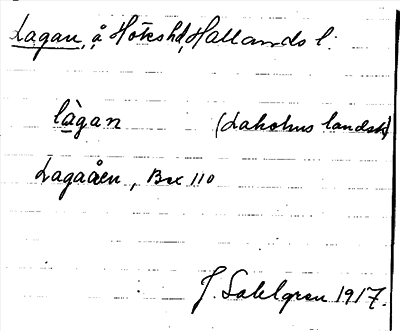 Lagan, å Hökshd, Hallands l.
làgan (Laholms landsk)
Lagaåen, Bex 110
J. Sahlgren 1917.